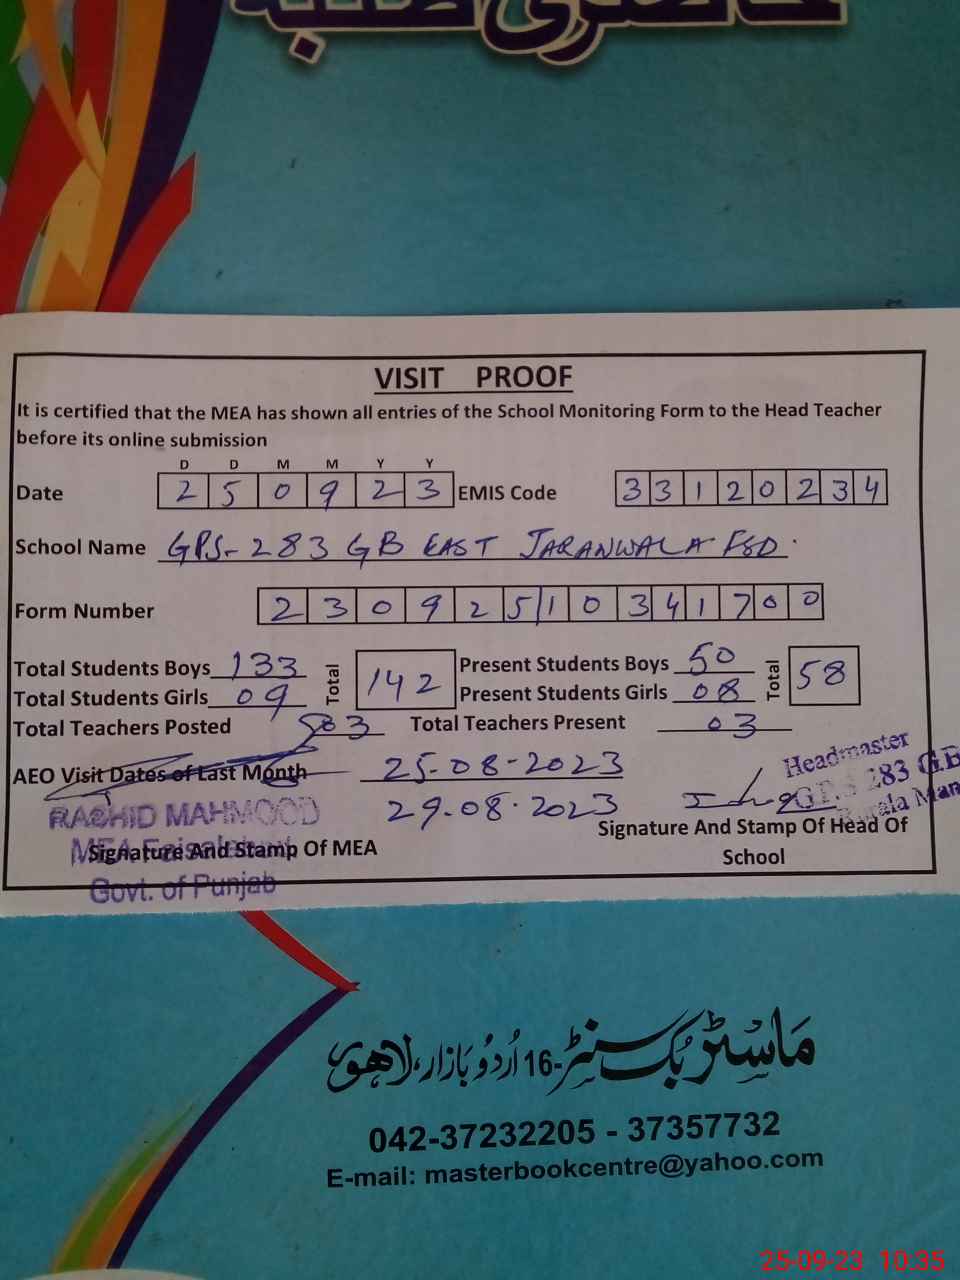 حاضری طلبہ
VISIT PROOF
It is certified that the MEA has shown all entries of the School Monitoring Form to the Head Teacher
before its online submission
D D M M Y Y
Date 2 5 0 9 2 3 EMIS Code 3 3 1 2 0 2 3 4
School Name GPS-283 GB EAST JARANWALA FSD.
Form Number 2 3 0 9 2 5 1 0 3 4 1 7 0 0
Total Students Boys 133 Total 142 Present Students Boys 50 Total 58
Total Students Girls 09 Present Students Girls 08
Total Teachers Posted 03 Total Teachers Present 03
AEO Visit Dates of Last Month 25-08-2023
29.08.2023
Headmaster
283 G.B
RASHID MAHMOOD
MEA Faisalabad
Govt. of Punjab
Signature And Stamp Of MEA
Signature And Stamp Of Head Of
School
ماسٹر بک سنٹر-16 اُردُو بازار، لاہور
042-37232205 - 37357732
E-mail: masterbookcentre@yahoo.com
25-09-23 10:35